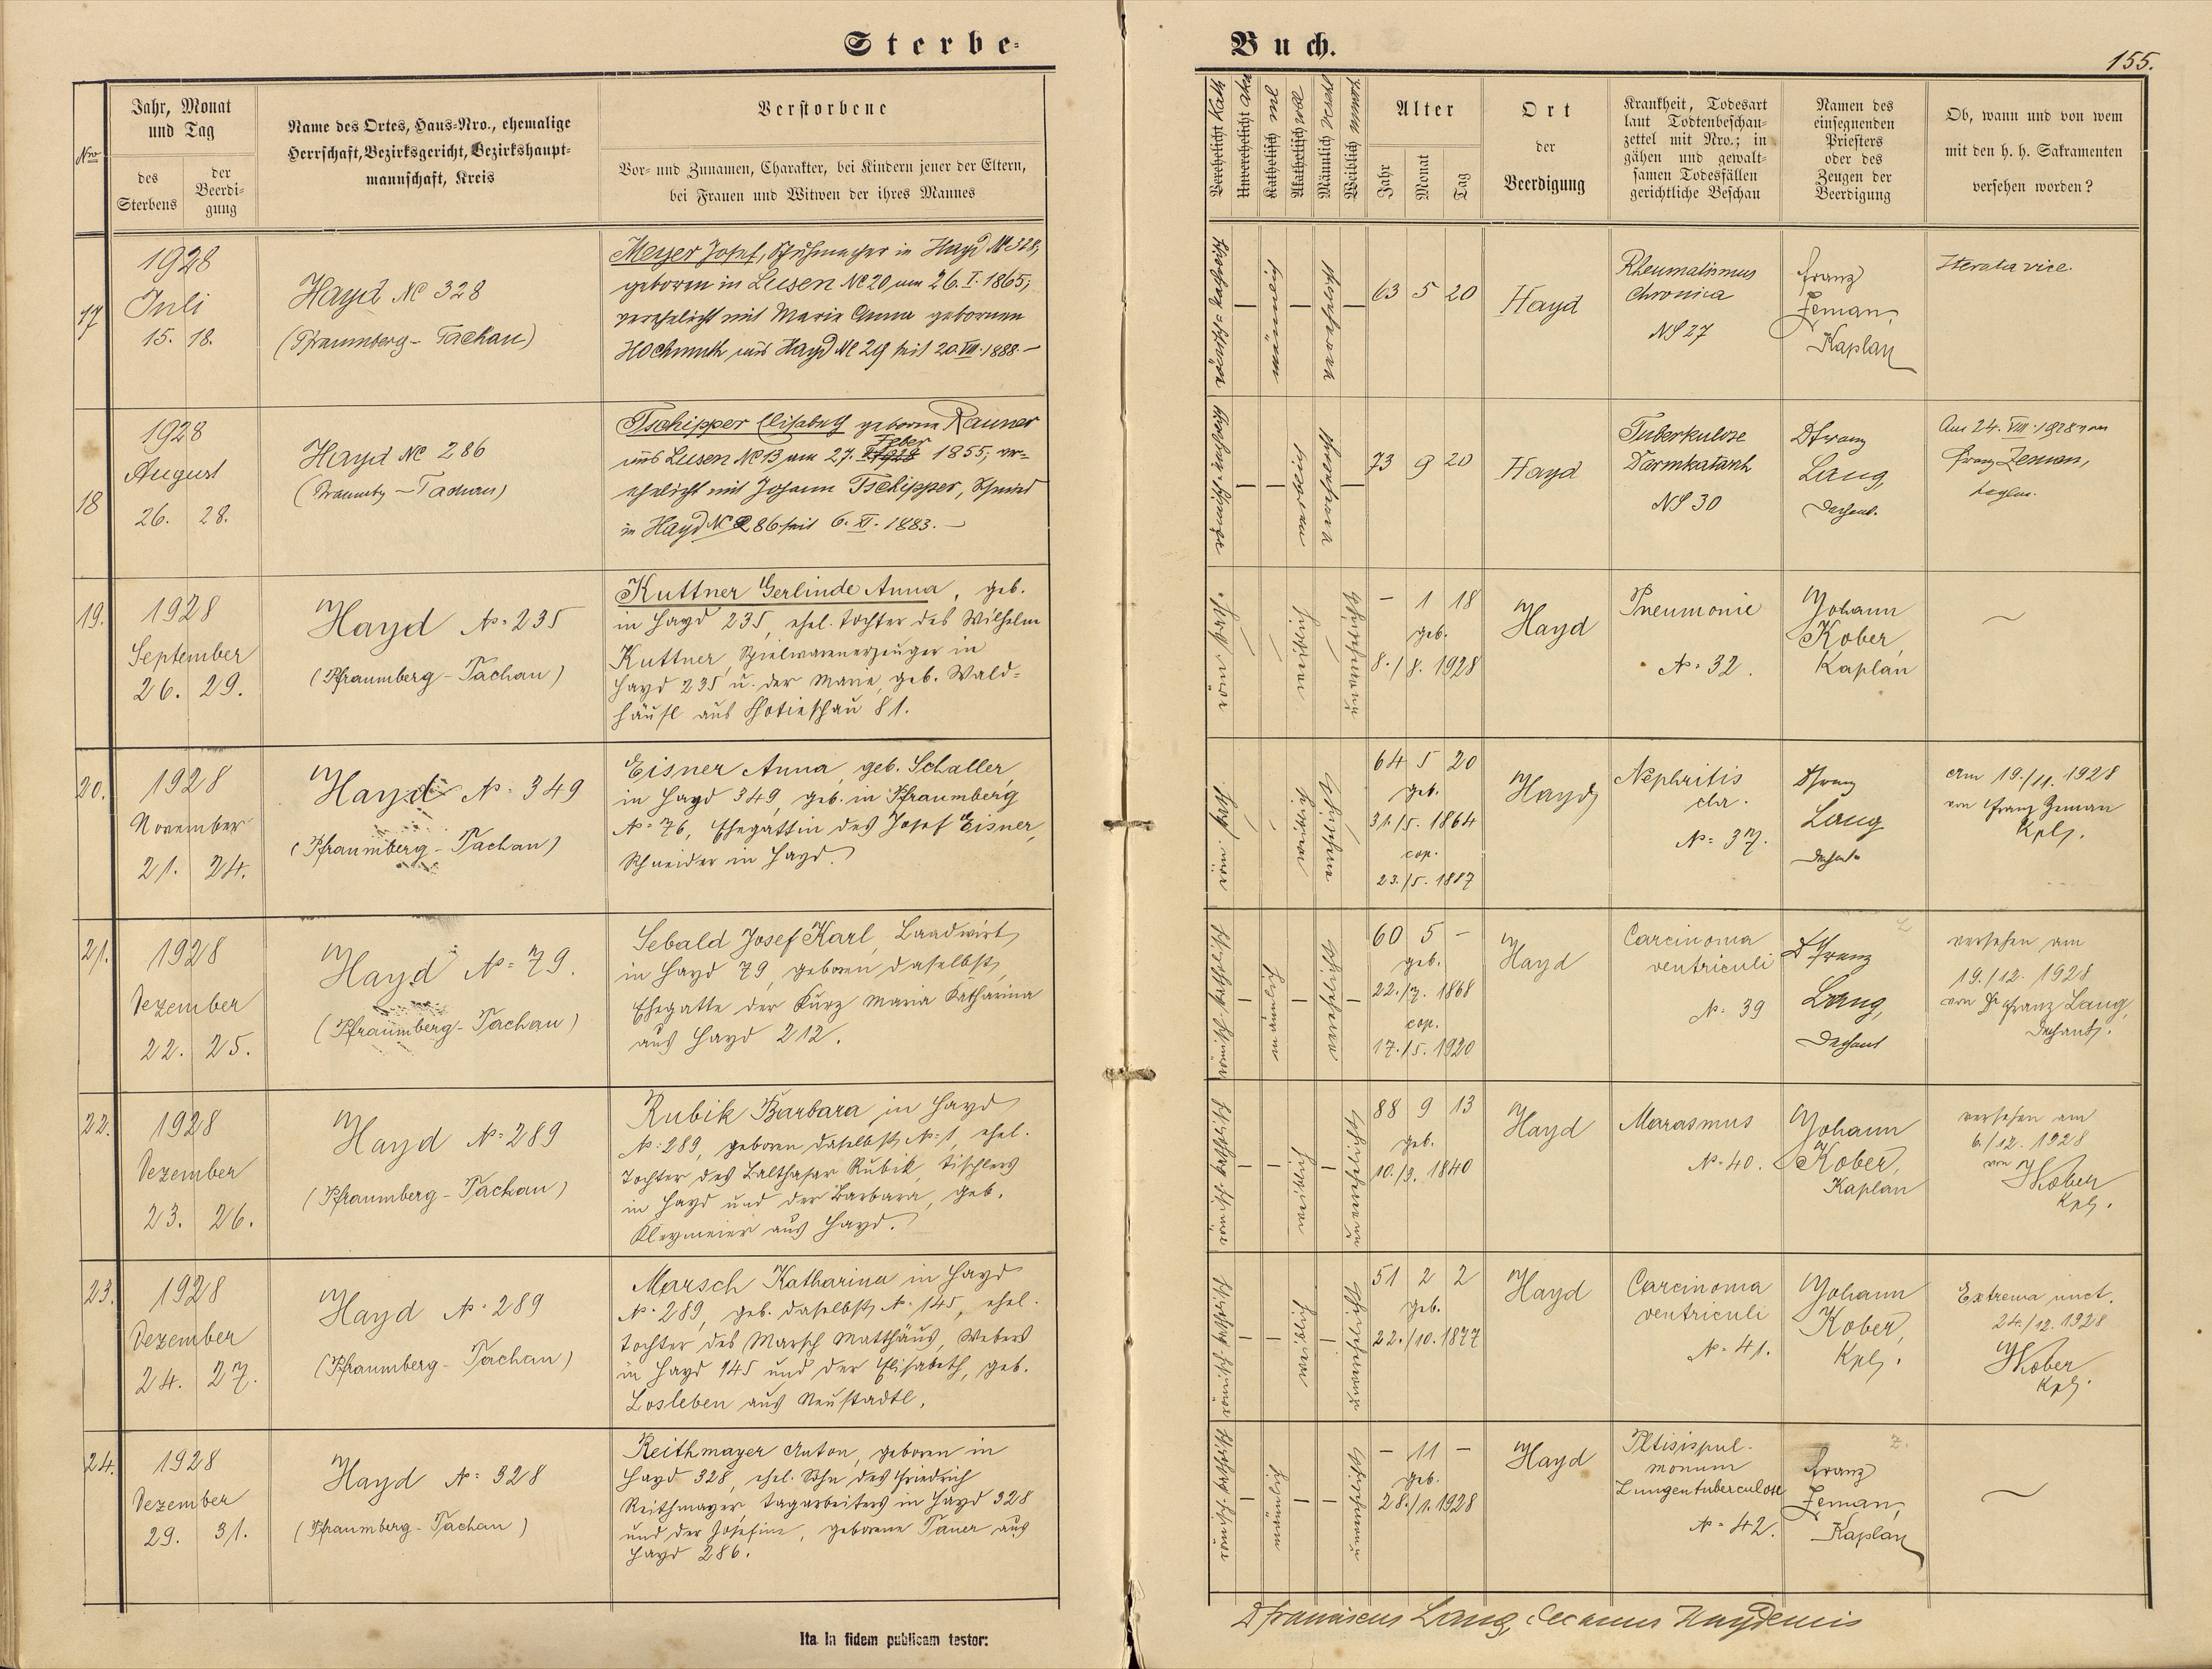 Sterbe-
Buch.
155.
Nro
Jahr, Monat
und Tag
des
Sterbens
der
Beerdi-
gung
Name des Ortes, Haus-Nro., ehemalige
Herrschaft, Bezirksgericht, Bezirkshaupt-
mannschaft, Kreis
Verstorbene
Vor- und Zunamen, Charakter, bei Kindern jener der Eltern,
bei Frauen und Witwen der ihres Mannes
Alter
Jahr
Monat
Tag
Ort
der
Beerdigung
Krankheit, Todesart
laut Todtenbeschau-
zettel mit Nro.; in
gähen und gewalt-
samen Todesfällen
gerichtliche Beschau
Namen des
einsegnenden
Priesters
oder des
Zeugen der
Beerdigung
Ob, wann und von wem
mit den h. h. Sakramenten
versehen worden?
17
1928
Juli
15. 18.
Hayd Nc 328
(Pfraumberg - Tachau)
Meyer Josef, Schuhmacher in Hayd Nc 328,
geboren in Lusen Nc 20 am 26. I. 1865;
verehelicht mit Marie Anna gebornen
Hochmuth aus Hayd Nc 29 seit 20. VIII. 1888. -
römisch-katholisch
männlich
verehelicht
63 5 20
Hayd
Rheumatismus
Chronica
NS 27
Franz
Zeman,
Kaplan
Iterata vice.
18
1928
August
26. 28.
Hayd Nc 286
Tschipper Elisabeth geborne Rauner
aus Lusen Nc 13 am 27. Feber 1855; ver-
ehelicht mit Johann Tschipper, Schmied
in Hayd Nc 286 seit 6. XI. 1883. -
römisch-katholisch
73 9 20
Hayd
Tuberkulose
Darmkatarrh
NS 30
Dr Franz
Lang,
Dechant.
Am 24. VIII. 1928 von
Franz Zeman,
Kaplan.
19.
1928
September
26. 29.
Hayd No 235
(Pfraumberg - Tachau)
Kuttner Gerlinde Anna, geb.
in Hayd 235, ehel. Tochter des Wilhelm
Kuttner, Spielwarenerzeuger in
Hayd 235 u. der Marie, geb. Wald-
häusl aus Chotieschau 81.
röm.-kath.
weiblich
unverehelicht
- 1 18
geb.
8./8. 1928
Hayd
Pneumonie
No 32.
Johann
Kober,
Kaplan
20.
1928
November
21. 24.
Hayd No 349
(Pfraumberg - Tachau)
Eisner Anna, geb. Schaller,
in Hayd 349, geb. in Pfraumberg
No 76, Ehegattin des Josef Eisner,
Schneider in Hayd.
röm. kath.
weiblich
verehelicht
64 5 20
geb.
31./5. 1864
cop.
23./5. 1887
Hayd
Nephritis
chr.
No 37.
Dr Franz
Lang
Dechant
Am 19./11. 1928
von Franz Zeman
Kpl.
21.
1928
Dezember
22. 25.
Hayd No 79.
(Pfraumberg - Tachau)
Sebald Josef Karl, Landwirt
in Hayd 79, geboren daselbst,
Ehegatte der Kurz Maria Katharina
aus Hayd 212.
römisch-katholisch
männlich
verehelicht
60 5 -
geb.
22./7. 1868
cop.
17./5. 1920
Hayd
Carcinoma
ventriculi
No 39
Dr Franz
Lang,
Dechant
versehen am
19./12. 1928
von Dr Franz Lang,
Dechant.
22.
1928
Dezember
23. 26.
Hayd No 289
(Pfraumberg - Tachau)
Rubik Barbara in Hayd
No 289, geboren daselbst No 1, ehel.
Tochter des Balthasar Rubik, Tischlers
in Hayd und der Barbara, geb.
Kleymeier aus Hayd.
römisch-katholisch
weiblich
unverehelicht
88 9 13
geb.
10./3. 1840
Hayd
Marasmus
No 40.
Johann
Kober,
Kaplan
versehen am
6./12. 1928
von
JKober
Kpl.
23.
1928
Dezember
24. 27.
Hayd No 289
(Pfraumberg - Tachau)
Marsch Katharina in Hayd
No 289, geb. daselbst No 145, ehel.
Tochter des Marsch Matthäus, Webers
in Hayd 145 und der Elisabeth, geb.
Losleben aus Neustadtl.
römisch-katholisch
weiblich
unverehelicht
51 2 2
geb.
22./10. 1877
Hayd
Carcinoma
ventriculi
No 41.
Johann
Kober,
Kpl.
Extrema unct.
24./12. 1928
JKober
Kpl.
24.
1928
Dezember
29. 31.
Hayd No 328
(Pfraumberg - Tachau)
Reithmayer Anton, geboren in
Hayd 328, ehel. Sohn des Friedrich
Reithmayer, Tagarbeiters in Hayd 328
und der Josefine, geborene Tauer aus
Hayd 286.
römisch-katholisch
männlich
unverehelicht
- 11 -
geb.
28./1. 1928
Hayd
Phtisis pul-
monum
Lungentuberculose
No 42.
Franz
Zeman,
Kaplan
Ita in fidem publicam testor:
Dr Franciscus Lang, Decanus Haydensis